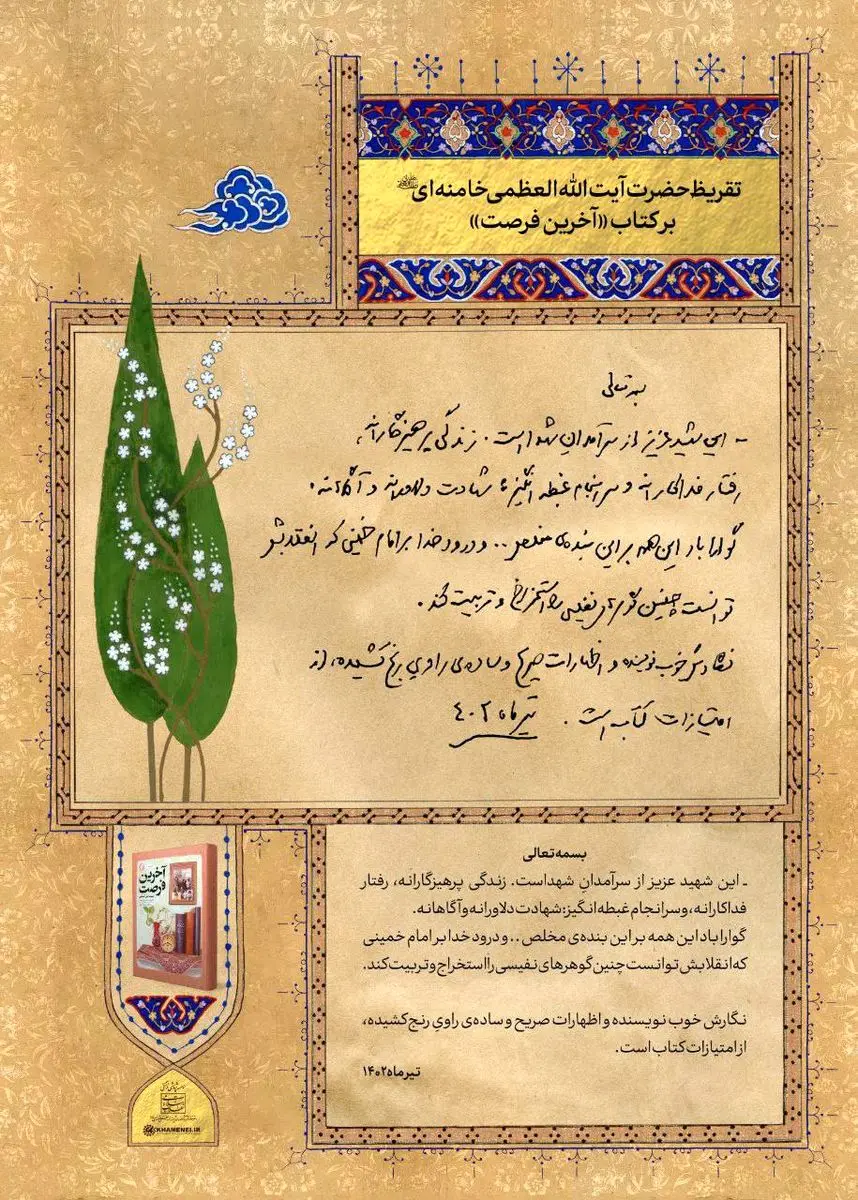 تقریظ حضرت آیت الله العظمی خامنه‌ای
بر کتاب «آخرین فرصت»
بسمه تعالی
ـ این شهید عزیز از سرآمدان شهدا است. زندگی پرهیزگارانه،
رفتار فداکارانه و سرانجام غبطه‌انگیز: شهادت دلاورانه و آگاهانه.
گوارا باد این همه بر این بنده‌ی مخلص .. و درود خدا بر امام خمینی که انقلابش
توانست چنین گوهرهای نفیسی را استخراج و تربیت کند.
نگارش خوب نویسنده و اظهارات صریح و ساده‌ی راوی رنج کشیده، از
امتیازات کتاب است. تیر ماه ۴۰۲
بسمه تعالی
ـ این شهید عزیز از سرآمدانِ شهداست. زندگی پرهیزگارانه، رفتار
فداکارانه، و سرانجام غبطه‌انگیز: شهادت دلاورانه و آگاهانه.
گوارا باد این همه بر این بنده‌ی مخلص . . و درود خدا بر امام خمینی
که انقلابش توانست چنین گوهرهای نفیسی را استخراج و تربیت کند.
نگارش خوب نویسنده و اظهارات صریح و ساده‌ی راویِ رنج کشیده،
از امتیازات کتاب است.
تیر ماه ۱۴۰۲
آخرین
فرصت
KHAMENEI.IR